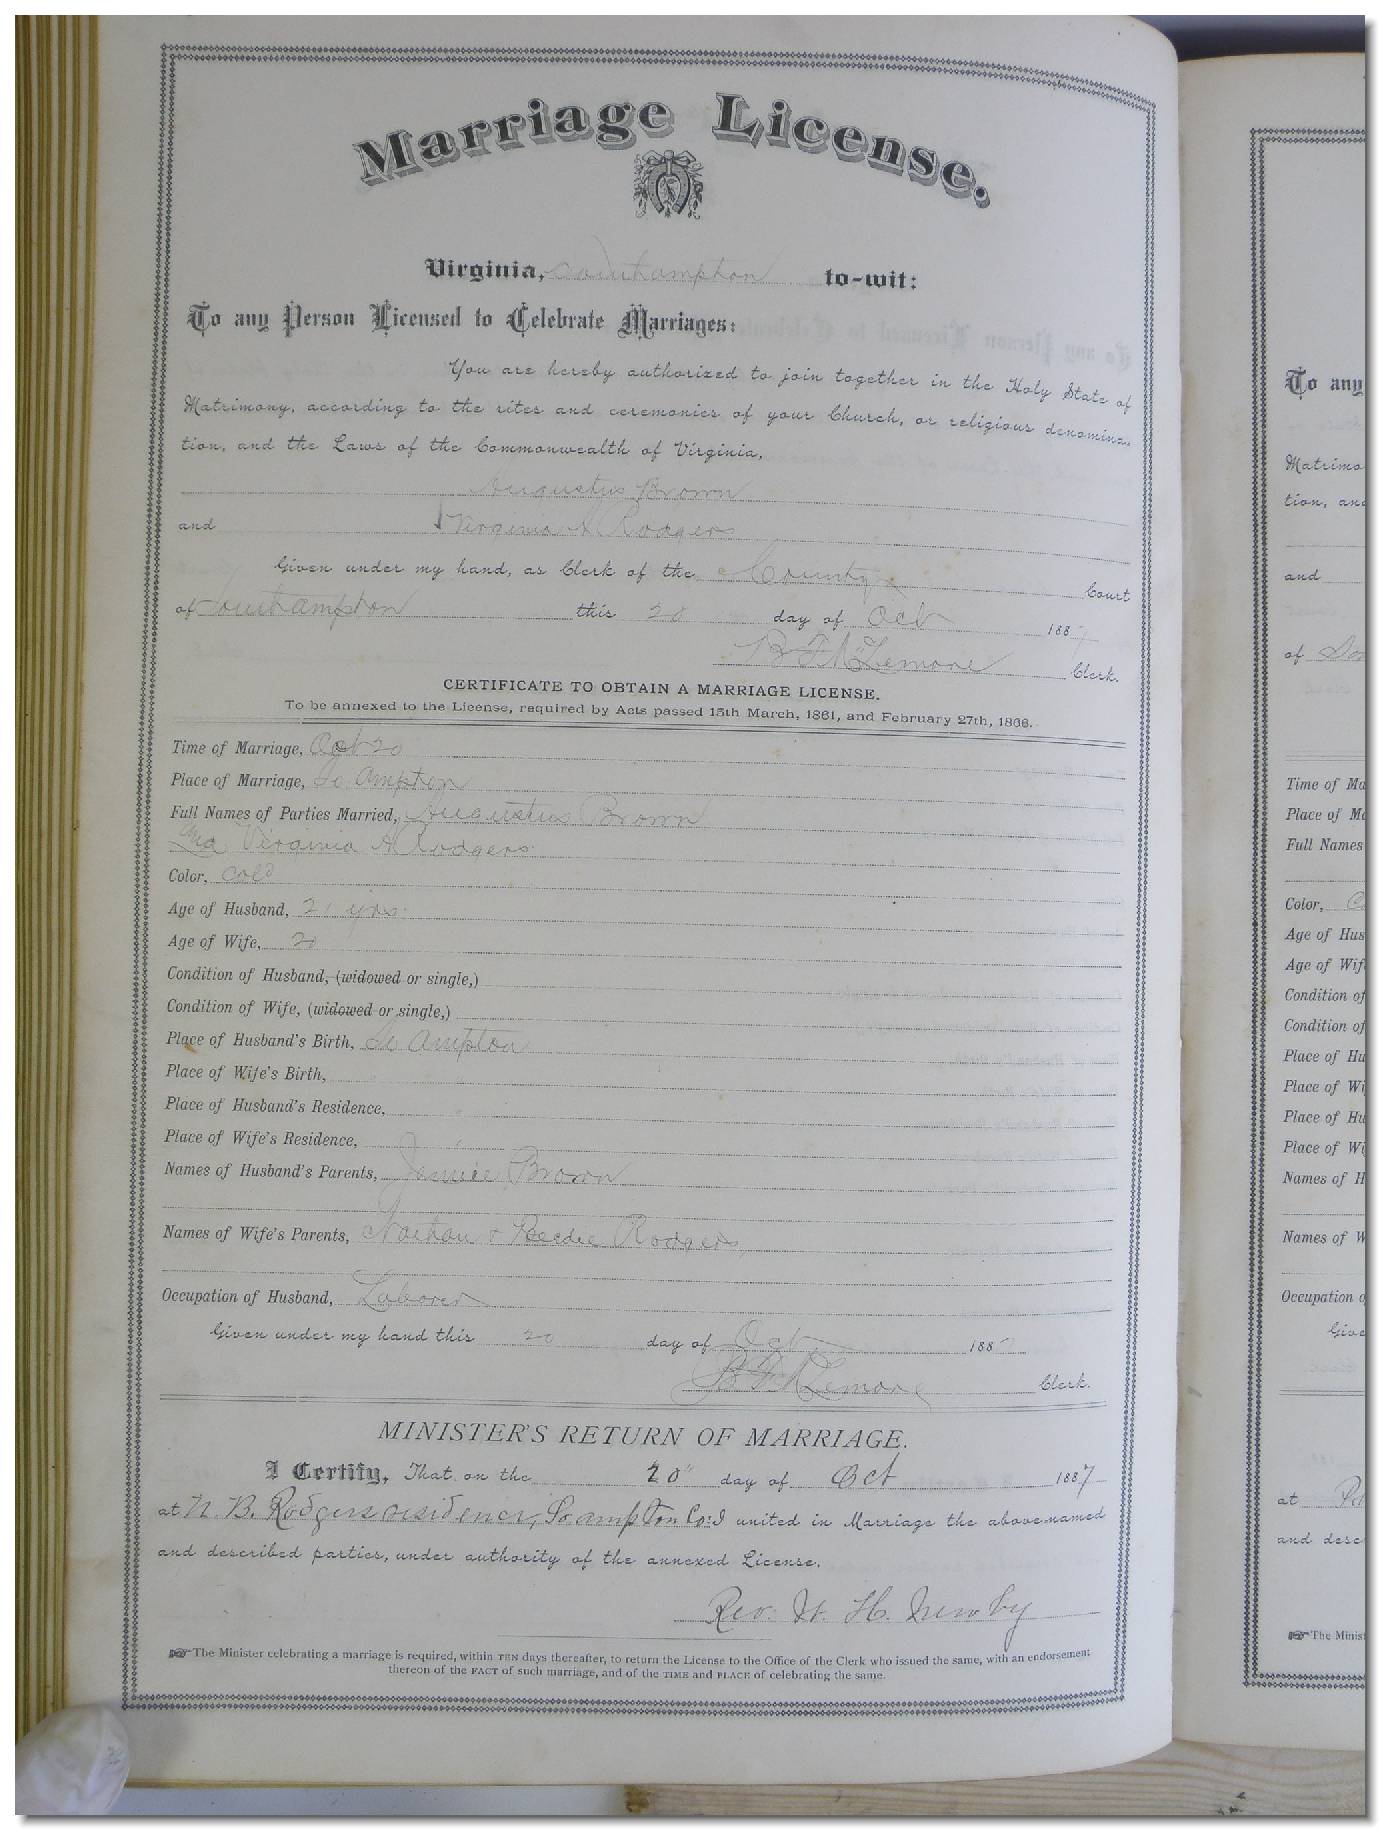 Marriage License.
Virginia, Southampton to-wit:
To any Person Licensed to Celebrate Marriages:
You are hereby authorized to join together in the Holy State of
Matrimony, according to the rites and ceremonies of your Church, or religious denomina-
tion, and the Laws of the Commonwealth of Virginia,
Augustus Brown
and Virginia A Rodgers
Given under my hand, as Clerk of the County Court
of Southampton this 20 day of Oct 1887
B F McLemore Clerk.
CERTIFICATE TO OBTAIN A MARRIAGE LICENSE.
To be annexed to the License, required by Acts passed 15th March, 1861, and February 27th, 1866.
Time of Marriage, Oct 20
Place of Marriage, So Ampton
Full Names of Parties Married, Augustus Brown
And Virginia A Rodgers
Color, Cold
Age of Husband, 21 yrs.
Age of Wife, 20
Condition of Husband, (widowed or single,)
Condition of Wife, (widowed or single,)
Place of Husband's Birth, So Ampton
Place of Wife's Birth,
Place of Husband's Residence,
Place of Wife's Residence,
Names of Husband's Parents, Jennie Brown
Names of Wife's Parents, Nathan & Rodgers,
Occupation of Husband, Laborer
Given under my hand this 20 day of Oct 188
B F McLemore Clerk.
MINISTER'S RETURN OF MARRIAGE.
I Certify, That on the 20" day of Oct 1887
at N. B. Rodgers residence, So. ampton Co: I united in Marriage the above-named
and described parties, under authority of the annexed License.
Rev. W. H. Newby
The Minister celebrating a marriage is required, within TEN days thereafter, to return the License to the Office of the Clerk who issued the same, with an endorsement
thereon of the FACT of such marriage, and of the TIME and PLACE of celebrating the same.
To any
Matrimo
tion, an
and
of So
Time of Ma
Place of Ma
Full Names
Color, C
Age of Hus
Age of Wif
Condition of
Condition of
Place of Hu
Place of Wi
Place of Hu
Place of Wi
Names of H
Names of W
Occupation o
Give
at
and desc
The Minist